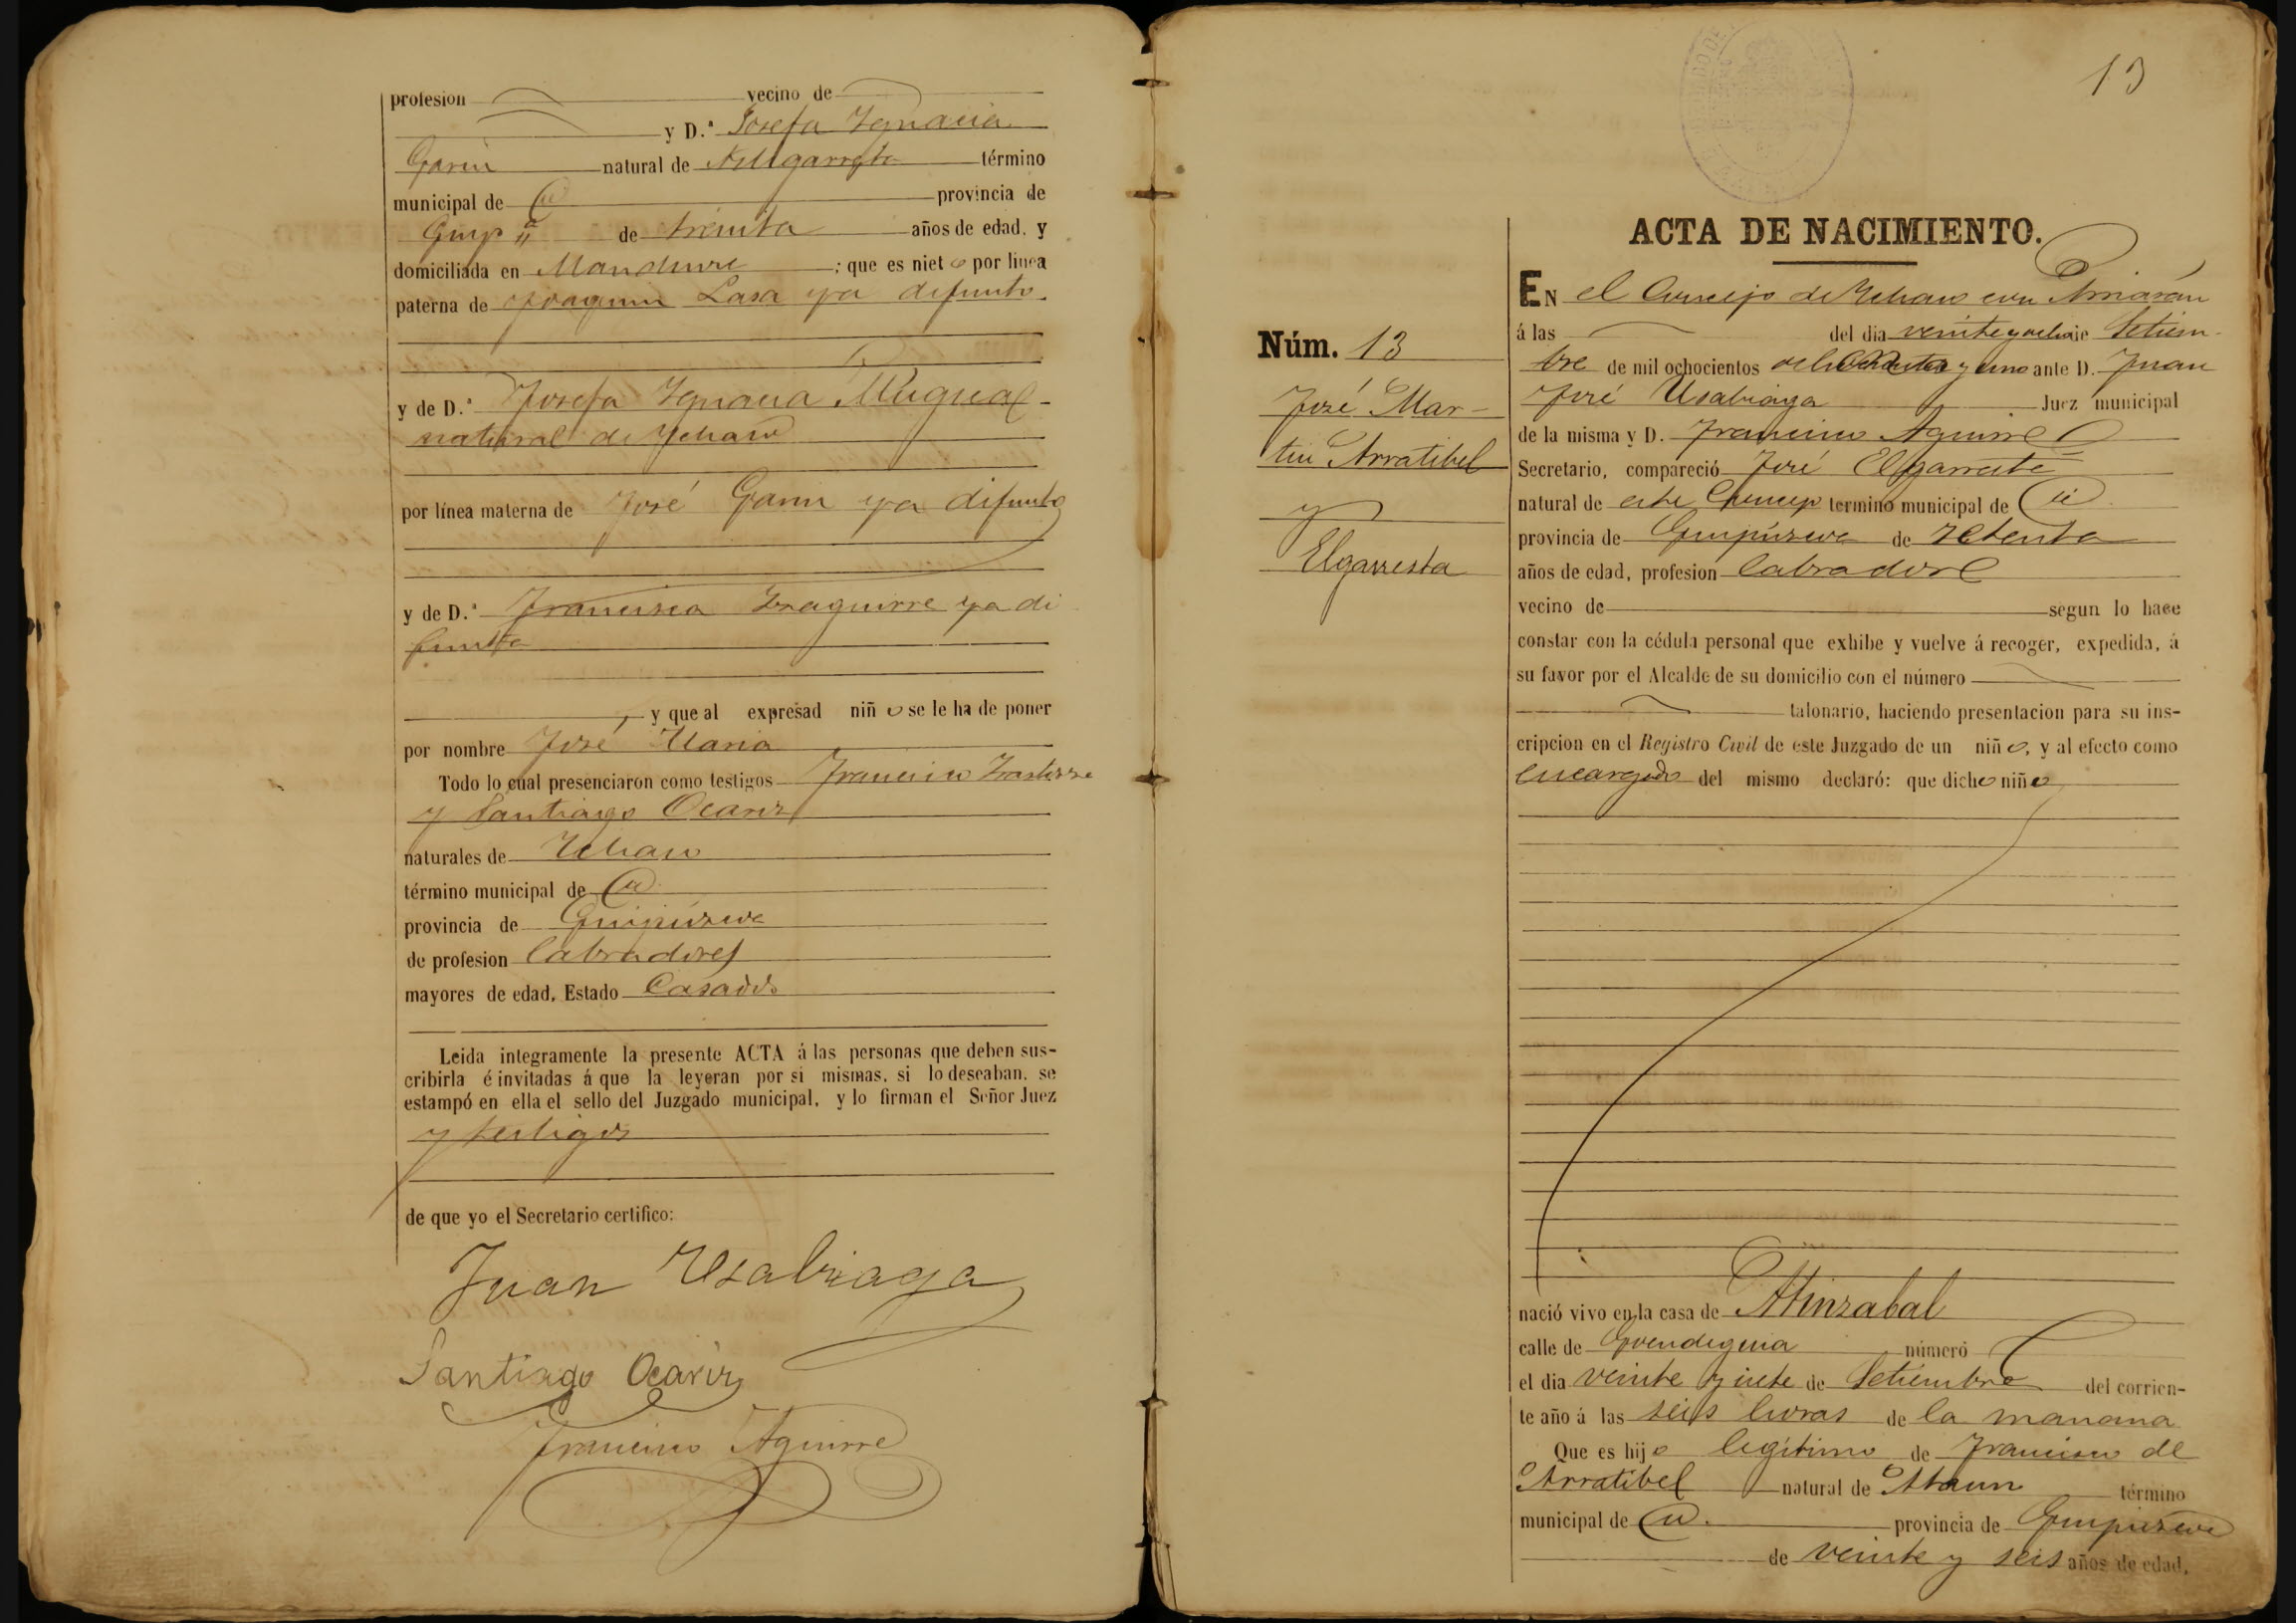 profesion vecino de
y D.ª Josefa Ygnacia
Garin natural de término
municipal de id provincia de
Guip.ª de treinta años de edad, y
domiciliada en ; que es niet o por linea
paterna de Joaquin Lasa ya difunto
y de D.ª Josefa Ygnacia Mugica
natural de Ychaso
por línea materna de José Garin ya difunto
y de D.ª Francisca Yzaguirre ya di
funta
y que al expresad niñ o se le ha de poner
por nombre José Maria
Todo lo cual presenciaron como testigos Francisco
y Santiago Ocariz
naturales de Ychaso
término municipal de id
provincia de Guipúzcoa
de profesion labradores
mayores de edad, Estado Casados
Leida integramente la presente ACTA á las personas que deben sus-
cribirla é invitadas á que la leyeran por si mismas, si lo deseaban, se
estampó en ella el sello del Juzgado municipal, y lo firman el Señor Juez
y testigos
de que yo el Secretario certifico:
Juan Usabiaga
Santiago Ocariz
Francisco Aguirre
13
ACTA DE NACIMIENTO.
Núm. 13
José Mar-
tin Arratibel
y
Elgarresta
EN el Concejo de Ychaso con Arriarán
á las del dia veinte y ocho de Setiem-
bre de mil ochocientos ochenta y uno ante D. Juan
José Usabiaga Juez municipal
de la misma y D. Francisco Aguirre
Secretario, compareció José
natural de este Concejo termino municipal de id
provincia de Guipúzcoa de setenta
años de edad, profesion labrador
vecino de segun lo hace
constar con la cédula personal que exhibe y vuelve á recoger, expedida, á
su favor por el Alcalde de su domicilio con el número
talonario, haciendo presentacion para su ins-
cripcion en el Registro Civil de este Juzgado de un niñ o, y al efecto como
encargado del mismo declaró: que dicho niño
nació vivo en la casa de
calle de número
el dia veinte y siete de Setiembre del corrien-
te año á las seis horas de la manana
Que es hij o legítimo de Francisco de
Arratibel natural de Ataun término
municipal de id. provincia de Guipúzcoa
de veinte y seis años de edad,